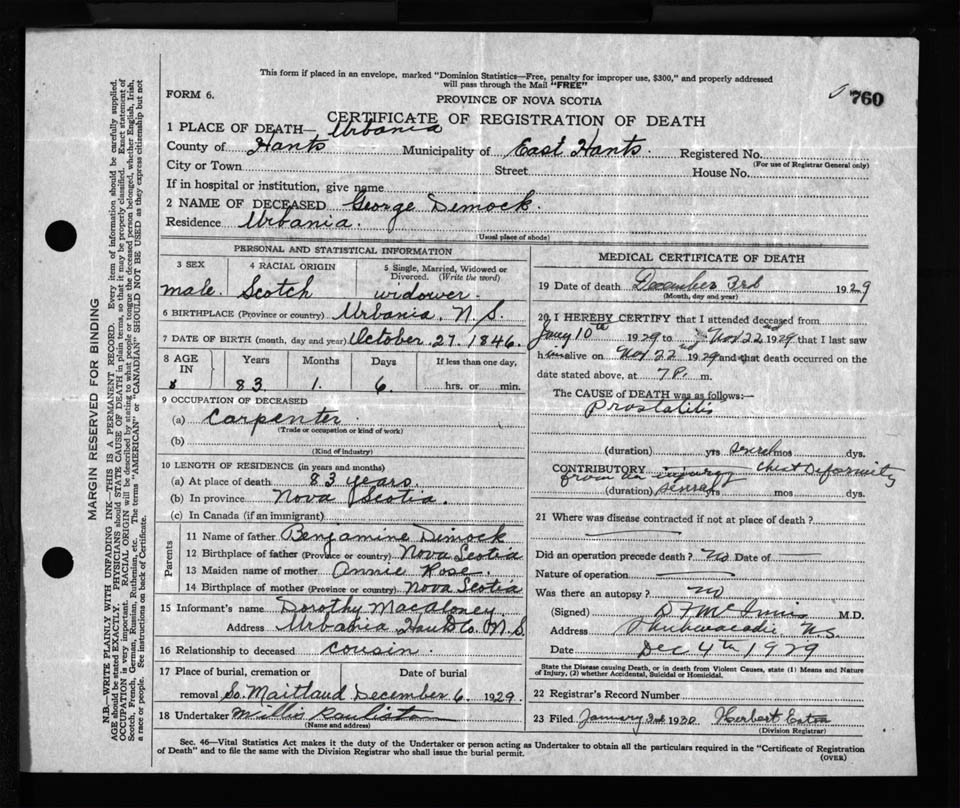 This form if placed in an envelope, marked "Dominion Statistics—Free, penalty for improper use, $300," and properly addressed
will pass through the Mail "FREE"
FORM 6.
PROVINCE OF NOVA SCOTIA
760
CERTIFICATE OF REGISTRATION OF DEATH
1 PLACE OF DEATH— Urbania
County of Hants Municipality of East Hants. Registered No.
(For use of Registrar General only)
City or Town Street House No.
If in hospital or institution, give name
2 NAME OF DECEASED George Dimock.
Residence Urbania.
(Usual place of abode)
PERSONAL AND STATISTICAL INFORMATION
3 SEX 4 RACIAL ORIGIN 5 Single, Married, Widowed or Divorced. (Write the word)
male. Scotch widower.
6 BIRTHPLACE (Province or country) Urbania, N.S.
7 DATE OF BIRTH (month, day and year) October 27, 1846.
8 AGE IN Years Months Days If less than one day,
83 1. 6. hrs. or min.
9 OCCUPATION OF DECEASED
(a) Carpenter.
(Trade or occupation or kind of work)
(b)
(Kind of industry)
10 LENGTH OF RESIDENCE (in years and months)
(a) At place of death 83 years.
(b) In province Nova Scotia.
(c) In Canada (if an immigrant)
Parents
11 Name of father Benjamine Dimock
12 Birthplace of father (Province or country) Nova Scotia
13 Maiden name of mother Annie Rose.
14 Birthplace of mother (Province or country) Nova Scotia
15 Informant's name Dorothy Macaloney
Address Urbania Hants Co. N.S.
16 Relationship to deceased cousin.
17 Place of burial, cremation or removal Date of burial
So. Maitland December 6, 1929.
18 Undertaker Millis
(Name and address)
MEDICAL CERTIFICATE OF DEATH
19 Date of death December 3rd 1929
(Month, day and year)
20 I HEREBY CERTIFY that I attended deceased from
Jany 10th 1929 to Nov 22nd 1929 that I last saw
him alive on Nov 22nd 1929 and that death occurred on the
date stated above, at 7 P. m.
The CAUSE of DEATH was as follows:—
Prostatitis
(duration) yrs several mos dys.
CONTRIBUTORY Chest Deformity
from an injury
(duration) several yrs mos dys.
21 Where was disease contracted if not at place of death?
Did an operation precede death? No Date of
Nature of operation
Was there an autopsy? No
(Signed) D F McInnis M.D.
Address Shubenacadie N.S.
Date Dec 4th 1929
State the Disease causing Death, or in death from Violent Causes, state (1) Means and Nature
of Injury, (2) whether Accidental, Suicidal or Homicidal.
22 Registrar's Record Number
23 Filed January 3rd 1930 Herbert Eaton
(Division Registrar)
Sec. 46—Vital Statistics Act makes it the duty of the Undertaker or person acting as Undertaker to obtain all the particulars required in the "Certificate of Registration
of Death" and to file the same with the Division Registrar who shall issue the burial permit.
(OVER)
MARGIN RESERVED FOR BINDING
N.B.—WRITE PLAINLY WITH UNFADING INK—THIS IS A PERMANENT RECORD. Every item of information should be carefully supplied.
AGE should be stated EXACTLY. PHYSICIANS should STATE CAUSE OF DEATH in plain terms, so that it may be properly classified. Exact statement of
OCCUPATION is very important. RACIAL ORIGIN will be described by stating to what people or tongue the deceased person belonged, whether English, Irish,
Scotch, French, German, Russian, Ruthenian, etc. The terms "AMERICAN" or "CANADIAN" SHOULD NOT BE USED as they express citizenship but not
a race or people. See instructions on back of Certificate.